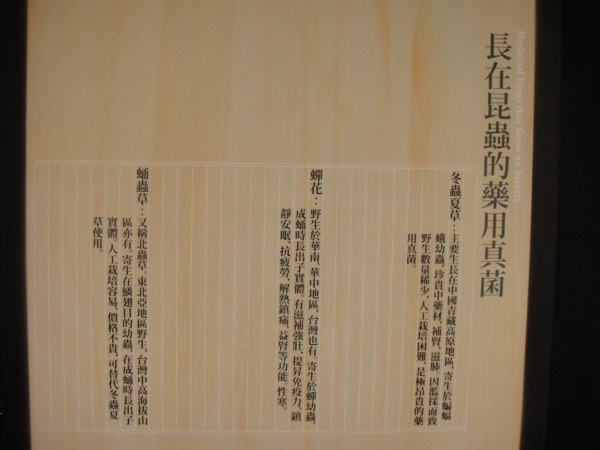 長在昆蟲的藥用真菌
Medicinal Fungi that Grow on Insects
冬蟲夏草：主要生長在中國青藏高原地區，寄生於蝙蝠
蛾幼蟲，珍貴中藥材，補腎、滋肺。因濫採而致
野生數量稀少，人工栽培困難，是極昂貴的藥
用真菌。
蟬花：野生於華南、華中地區，台灣也有，寄生於蟬幼蟲，
成蛹時長出子實體。有滋補強壯、提昇免疫力、鎮
靜安眠、抗疲勞、解熱鎮痛、益腎等功能。性寒。
蛹蟲草：又稱北蟲草。東北亞地區野生，台灣中高海拔山
區亦有。寄生在鱗翅目的幼蟲，在成蛹時長出子
實體。人工栽培容易，價格不貴，可替代冬蟲夏
草使用。